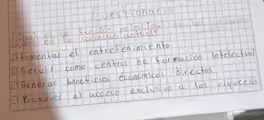 Cuestionario
Fomentar el entretenimiento.
Servir como centros de formación intelectual
Generar beneficios económicos directos.
Promover el acceso exclusivo a las riquezas